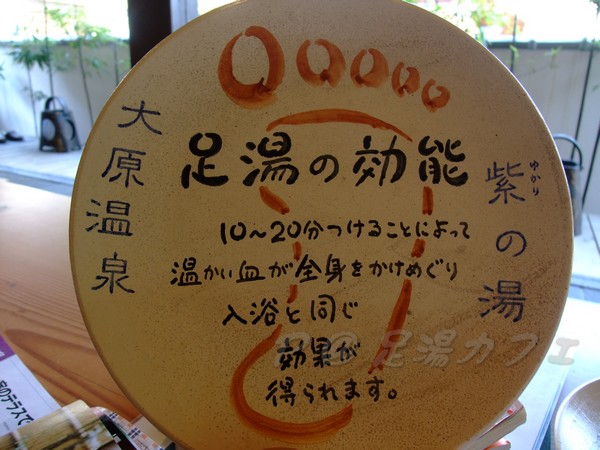 足湯の効能
10〜20分つけることによって
温かい血が全身をかけめぐり
入浴と同じ
効果が
得られます。
大原温泉
紫の湯
ゆかり
足湯カフェ
のテラスで